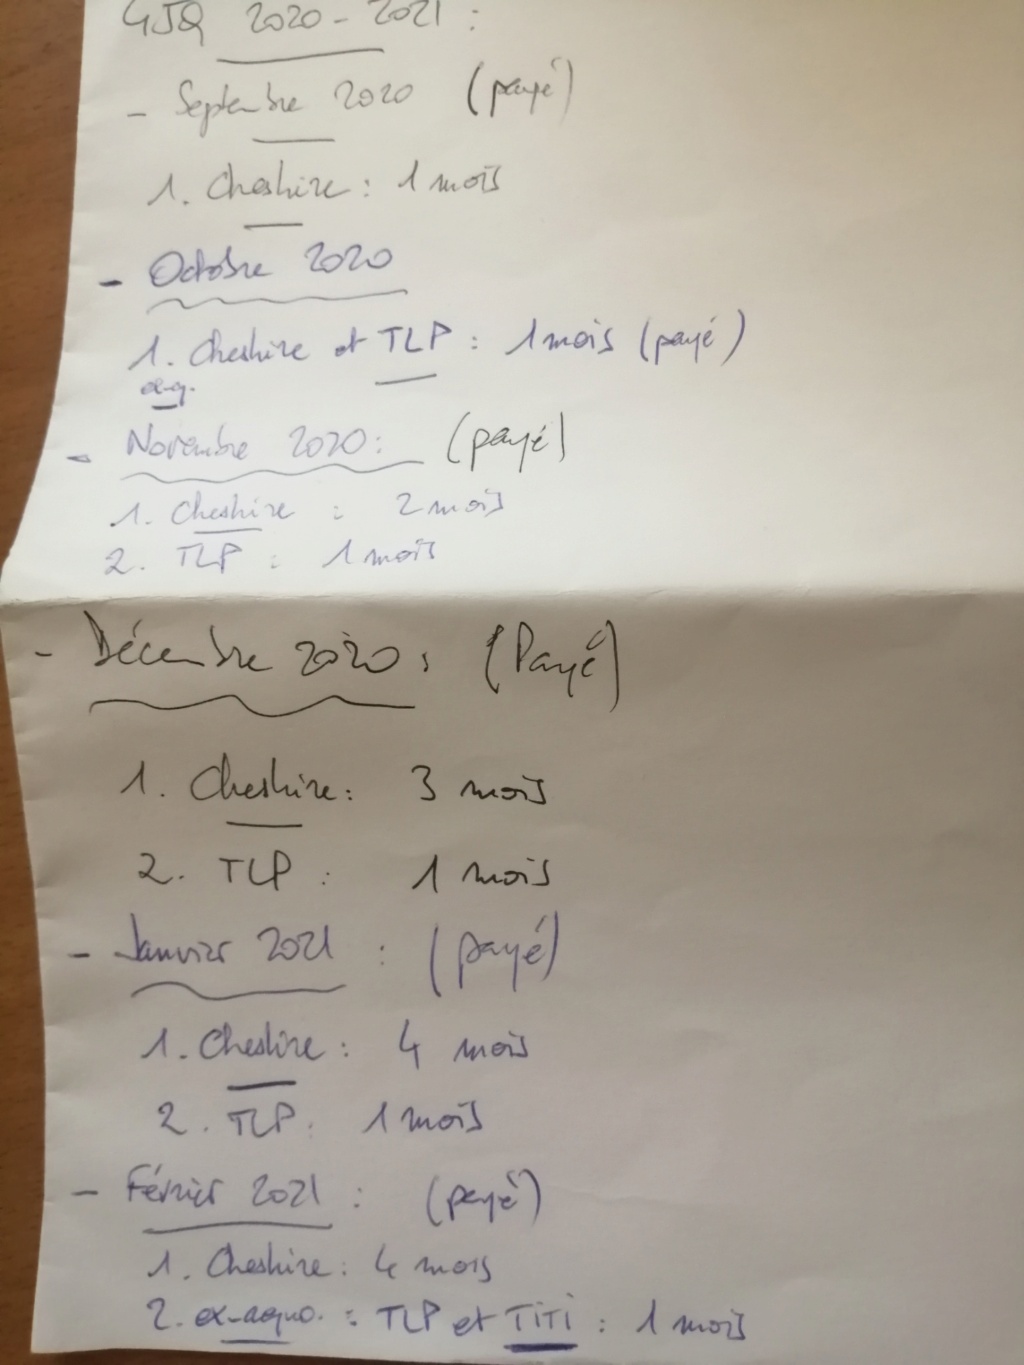 GJQ 2020-2021 :
- Septembre 2020 (payé)
1. Cheshire : 1 mois
- Octobre 2020
1. Cheshire et TLP : 1 mois (payé)
ex-aq.
- Novembre 2020 : (payé)
1. Cheshire : 2 mois
2. TLP : 1 mois
- Décembre 2020 : (Payé)
1. Cheshire : 3 mois
2. TLP : 1 mois
- Janvier 2021 : (payé)
1. Cheshire : 4 mois
2. TLP : 1 mois
- Février 2021 : (payé)
1. Cheshire : 4 mois
2. ex-aequo. : TLP et TiTi : 1 mois